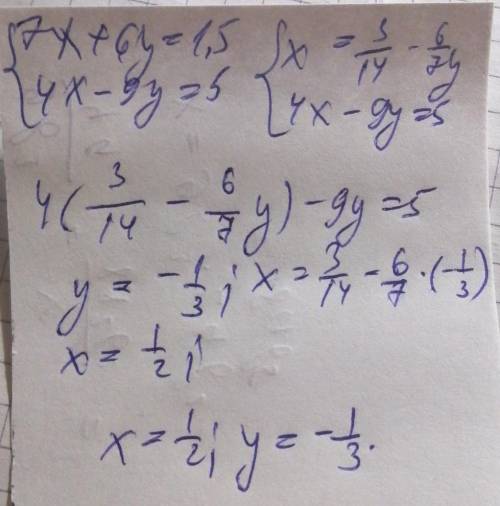 {7x+6y=1,5 {x = 3/14 - 6/7y
4x-9y=5 4x-9y=5
4(3/14 - 6/7 y)-9y=5
y = -1/3; x = 3/14 - 6/7 · (-1/3)
x = 1/2;
x = 1/2; y = -1/3.